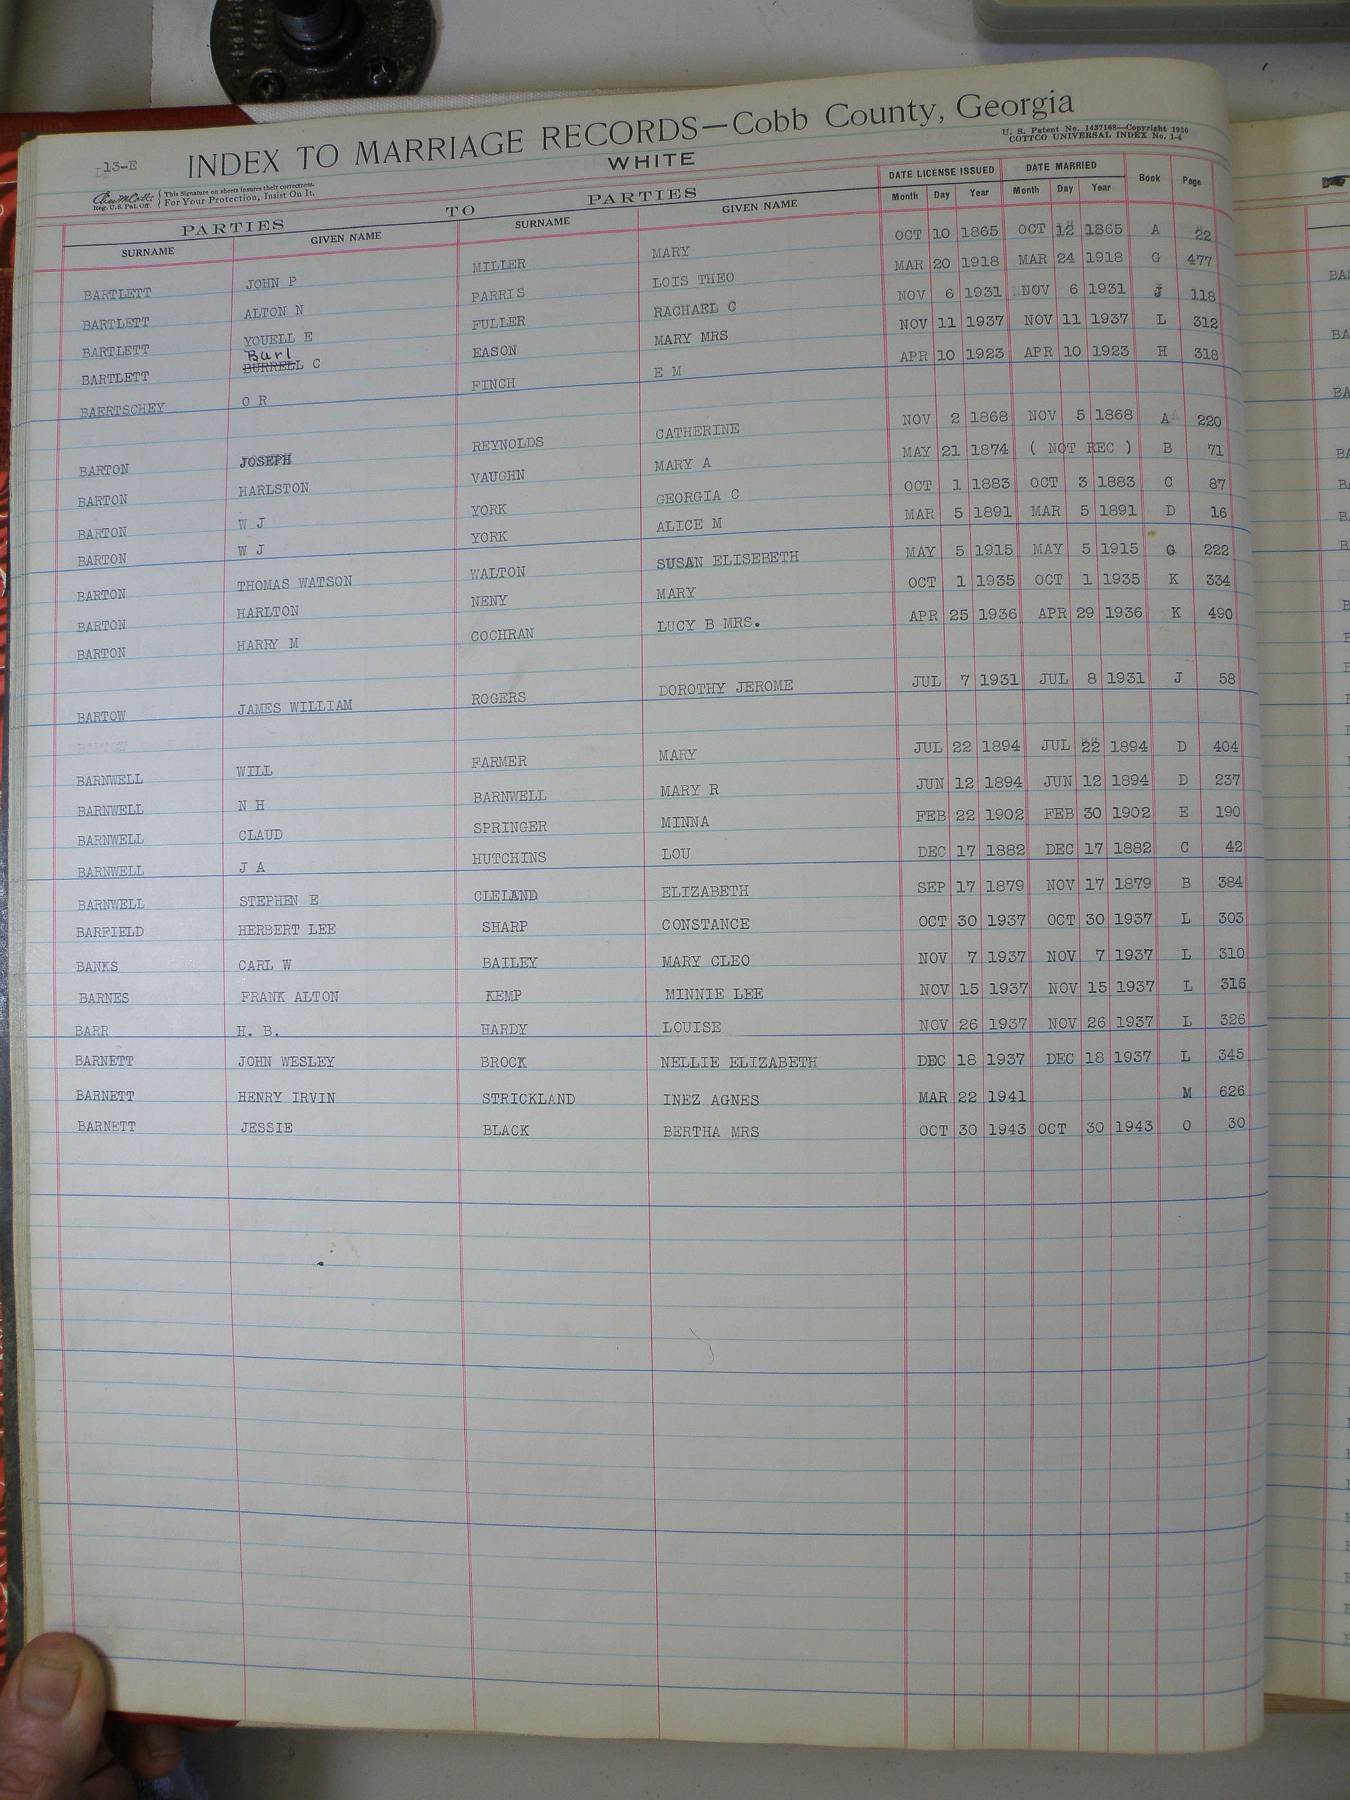 13-E
INDEX TO MARRIAGE RECORDS—Cobb County, Georgia
U. S. Patent No. 1437168—Copyright 1930
COTTCO UNIVERSAL INDEX No. 1-4
WHITE
Reg. U.S. Pat. Off.
This Signature on sheets insures their correctness.
For Your Protection, Insist On It.
PARTIES TO PARTIES DATE LICENSE ISSUED DATE MARRIED Book Page
SURNAME GIVEN NAME SURNAME GIVEN NAME Month Day Year Month Day Year
BARTLETT JOHN P MILLER MARY OCT 10 1865 OCT 12 1865 A 22
BARTLETT ALTON N PARRIS LOIS THEO MAR 20 1918 MAR 24 1918 G 477
BARTLETT YOUELL E FULLER RACHAEL C NOV 6 1931 NOV 6 1931 J 118
Burl
BARTLETT BURRELL C EASON MARY MRS NOV 11 1937 NOV 11 1937 L 312
BAERTSCHEY O R FINCH E M APR 10 1923 APR 10 1923 H 318
BARTON JOSEPH REYNOLDS CATHERINE NOV 2 1868 NOV 5 1868 A 220
BARTON HARLSTON VAUGHN MARY A MAY 21 1874 ( NOT REC ) B 71
BARTON W J YORK GEORGIA C OCT 1 1883 OCT 3 1883 C 87
BARTON W J YORK ALICE M MAR 5 1891 MAR 5 1891 D 16
BARTON THOMAS WATSON WALTON SUSAN ELISEBETH MAY 5 1915 MAY 5 1915 G 222
BARTON HARLTON NENY MARY OCT 1 1935 OCT 1 1935 K 334
BARTON HARRY M COCHRAN LUCY B MRS. APR 25 1936 APR 29 1936 K 490
BARTOW JAMES WILLIAM ROGERS DOROTHY JEROME JUL 7 1931 JUL 8 1931 J 58
BARNWELL WILL FARMER MARY JUL 22 1894 JUL 22 1894 D 404
BARNWELL N H BARNWELL MARY R JUN 12 1894 JUN 12 1894 D 237
BARNWELL CLAUD SPRINGER MINNA FEB 22 1902 FEB 30 1902 E 190
BARNWELL J A HUTCHINS LOU DEC 17 1882 DEC 17 1882 C 42
BARNWELL STEPHEN E CLELAND ELIZABETH SEP 17 1879 NOV 17 1879 B 384
BARFIELD HERBERT LEE SHARP CONSTANCE OCT 30 1937 OCT 30 1937 L 303
BANKS CARL W BAILEY MARY CLEO NOV 7 1937 NOV 7 1937 L 310
BARNES FRANK ALTON KEMP MINNIE LEE NOV 15 1937 NOV 15 1937 L 316
BARR H. B. HARDY LOUISE NOV 26 1937 NOV 26 1937 L 326
BARNETT JOHN WESLEY BROCK NELLIE ELIZABETH DEC 18 1937 DEC 18 1937 L 345
BARNETT HENRY IRVIN STRICKLAND INEZ AGNES MAR 22 1941 M 626
BARNETT JESSIE BLACK BERTHA MRS OCT 30 1943 OCT 30 1943 O 30